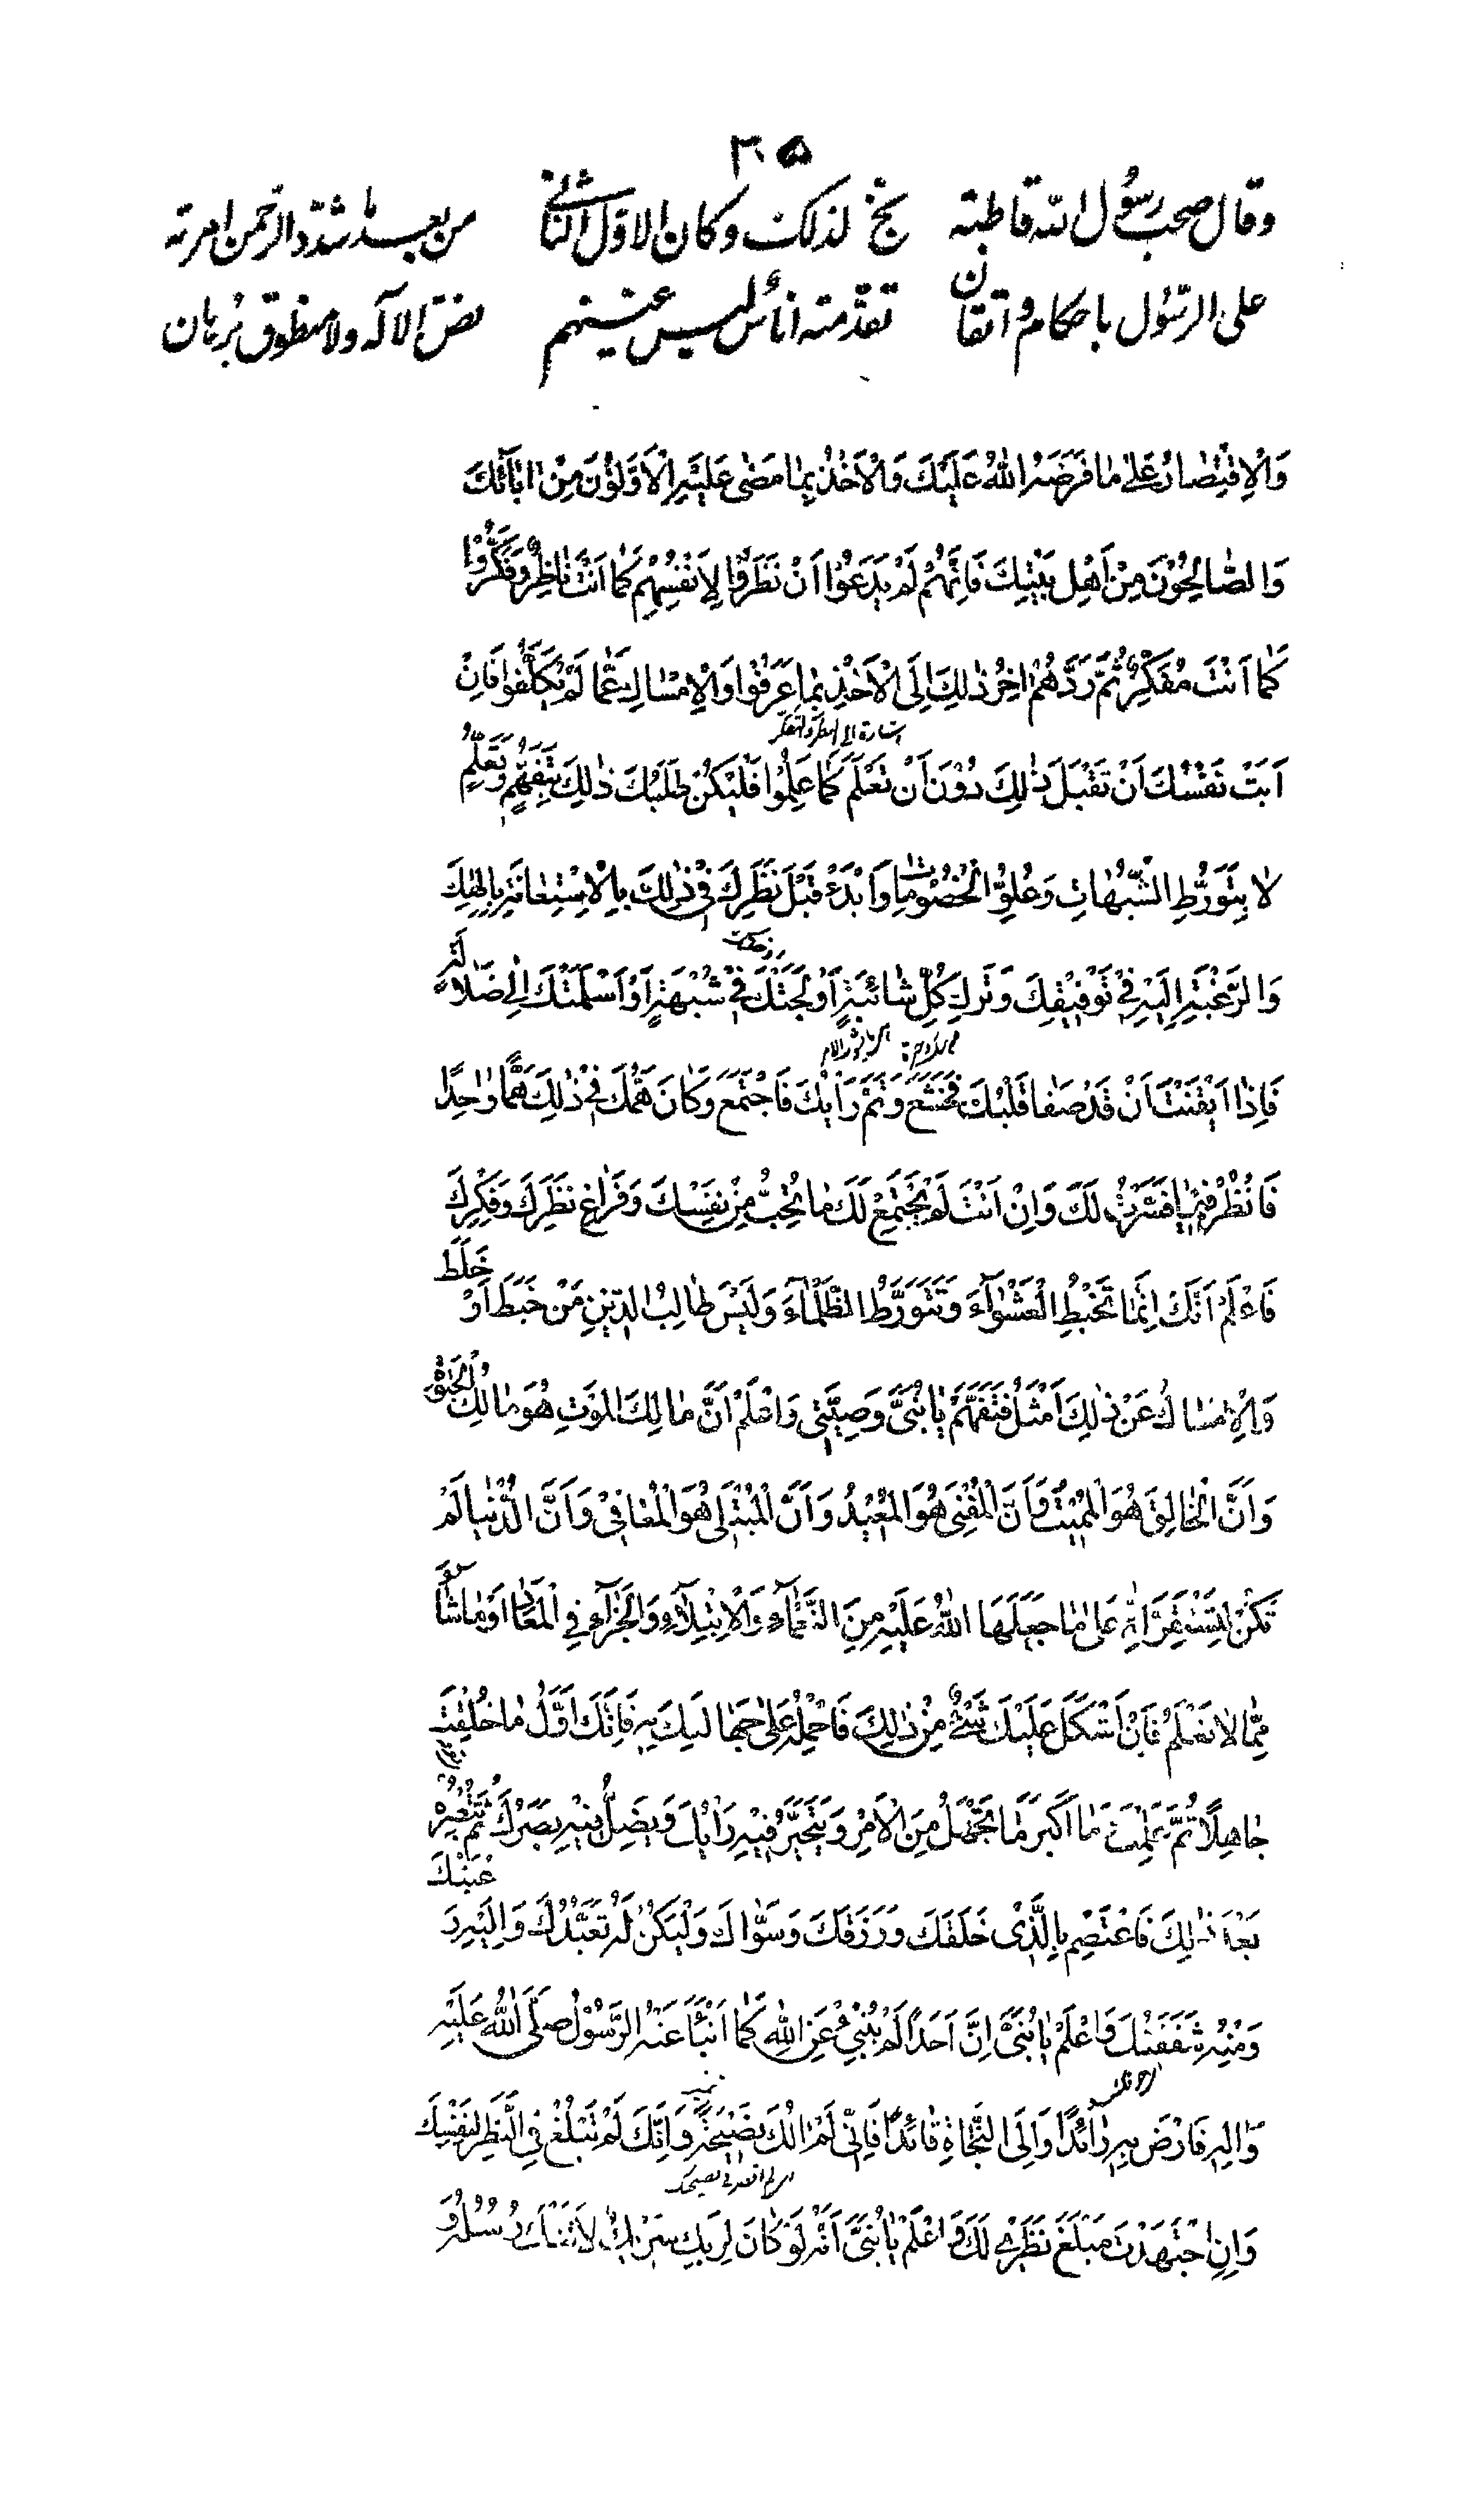 ٣٠٥
وقال صحب رسول الله قاطبة بخ لذلك وكان الاول الثاني من بعد
على الرسول باحكام واتقان تقدمته اناس ليس عينهم نص الاله ولا منطوق برهان
وَالْاِقْتِصَارُ عَلٰى مَا فَرَضَهُ اللهُ عَلَيْكَ وَالْاَخْذُ بِمَا مَضٰى عَلَيْهِ الْاَوَّلُوْنَ مِنْ اٰبَآئِكَ
وَالصَّالِحُوْنَ مِنْ اَهْلِ بَيْتِكَ فَاِنَّهُمْ لَمْ يَدَعُوْا اَنْ نَظَرُوْا لِاَنْفُسِهِمْ كَمَا اَنْتَ نَاظِرٌ وَفَكَّرُوْا
كَمَا اَنْتَ مُفَكِّرٌ ثُمَّ رَدَّهُمْ اٰخِرُ ذٰلِكَ اِلَى الْاَخْذِ بِمَا عَرَفُوْا وَالْاِمْسَاكِ عَمَّا لَمْ يُكَلَّفُوْا فَاِنْ
اَبَتْ نَفْسُكَ اَنْ تَقْبَلَ ذٰلِكَ دُوْنَ اَنْ تَعْلَمَ كَمَا عَلِمُوْا فَلْيَكُنْ طَلَبُكَ ذٰلِكَ بِتَفَهُّمٍ وَتَعَلُّمٍ
لَا بِتَوَرُّطِ الشُّبُهَاتِ وَعُلُوِّ الْخُصُوْمَاتِ وَابْدَءْ قَبْلَ نَظَرِكَ فِيْ ذٰلِكَ بِالْاِسْتِعَانَةِ بِاِلٰهِكَ
وَالرَّغْبَةِ اِلَيْهِ فِيْ تَوْفِيْقِكَ وَتَرْكِ كُلِّ شَائِبَةٍ اَوْلَجَتْكَ فِيْ شُبْهَةٍ اَوْ اَسْلَمَتْكَ اِلٰى ضَلَالَةٍ
فَاِذَا اَيْقَنْتَ اَنْ قَدْ صَفَا قَلْبُكَ فَخَشَعَ وَتَمَّ رَاْيُكَ فَاجْتَمَعَ وَكَانَ هَمُّكَ فِيْ ذٰلِكَ هَمًّا وَاحِدًا
فَانْظُرْ فِيْمَا فَسَّرْتُ لَكَ وَاِنْ اَنْتَ لَمْ يَجْتَمِعْ لَكَ مَا تُحِبُّ مِنْ نَفْسِكَ وَفَرَاغِ نَظَرِكَ وَفِكْرِكَ
فَاعْلَمْ اَنَّكَ اِنَّمَا تَخْبِطُ الْعَشْوَآءَ وَتَتَوَرَّطُ الظَّلْمَآءَ وَلَيْسَ طَالِبُ الدِّيْنِ مَنْ خَبَطَ اَوْ خَلَطَ
وَالْاِمْسَاكُ عَنْ ذٰلِكَ اَمْثَلُ فَتَفَهَّمْ يَا بُنَيَّ وَصِيَّتِيْ وَاعْلَمْ اَنَّ مَالِكَ الْمَوْتِ هُوَ مَالِكُ الْحَيٰوةِ
وَاَنَّ الْخَالِقَ هُوَ الْمُمِيْتُ وَاَنَّ الْمُفْنِيَ هُوَ الْمُعِيْدُ وَاَنَّ الْمُبْتَلِيَ هُوَ الْمُعَافِيْ وَاَنَّ الدُّنْيَا لَمْ
تَكُنْ لِتَسْتَقِرَّ اِلَّا عَلٰى مَا جَعَلَهَا اللهُ عَلَيْهِ مِنَ النَّعْمَآءِ وَالْاِبْتِلَآءِ وَالْجَزَآءِ فِي الْمَعَادِ اَوْ مَا شَآءَ
مِمَّا لَا نَعْلَمُ فَاِنْ اَشْكَلَ عَلَيْكَ شَيْءٌ مِنْ ذٰلِكَ فَاحْمِلْهُ عَلٰى جَهَالَتِكَ بِهِ فَاِنَّكَ اَوَّلُ مَا خُلِقْتَ
جَاهِلًا ثُمَّ عَلِمْتَ وَمَا اَكْثَرَ مَا تَجْهَلُ مِنَ الْاَمْرِ وَيَتَحَيَّرُ فِيْهِ رَاْيُكَ وَيَضِلُّ فِيْهِ بَصَرُكَ ثُمَّ تُبْصِرُهُ
بَعْدَ ذٰلِكَ فَاعْتَصِمْ بِالَّذِيْ خَلَقَكَ وَرَزَقَكَ وَسَوَّاكَ وَلْيَكُنْ لَهُ تَعَبُّدُكَ وَاِلَيْهِ رَغْبَتُكَ
وَمِنْهُ شَفَقَتُكَ وَاعْلَمْ يَا بُنَيَّ اِنَّ اَحَدًا لَمْ يُنْبِئْ عَنِ اللهِ كَمَا اَنْبَاَ عَنْهُ الرَّسُوْلُ صَلَّى اللهُ عَلَيْهِ
وَاٰلِهِ فَارْضَ بِهِ رَائِدًا وَاِلَى النَّجَاةِ قَائِدًا فَاِنِّيْ لَمْ اٰلُكَ نَصِيْحَةً وَاِنَّكَ لَمْ تَبْلُغْ فِي النَّظَرِ لِنَفْسِكَ
وَاِنِ اجْتَهَدْتَ مَبْلَغَ نَظَرِيْ لَكَ وَاعْلَمْ يَا بُنَيَّ اَنَّهُ لَوْ كَانَ لِرَبِّكَ شَرِيْكٌ لَاَتَتْكَ رُسُلُهُ وَ